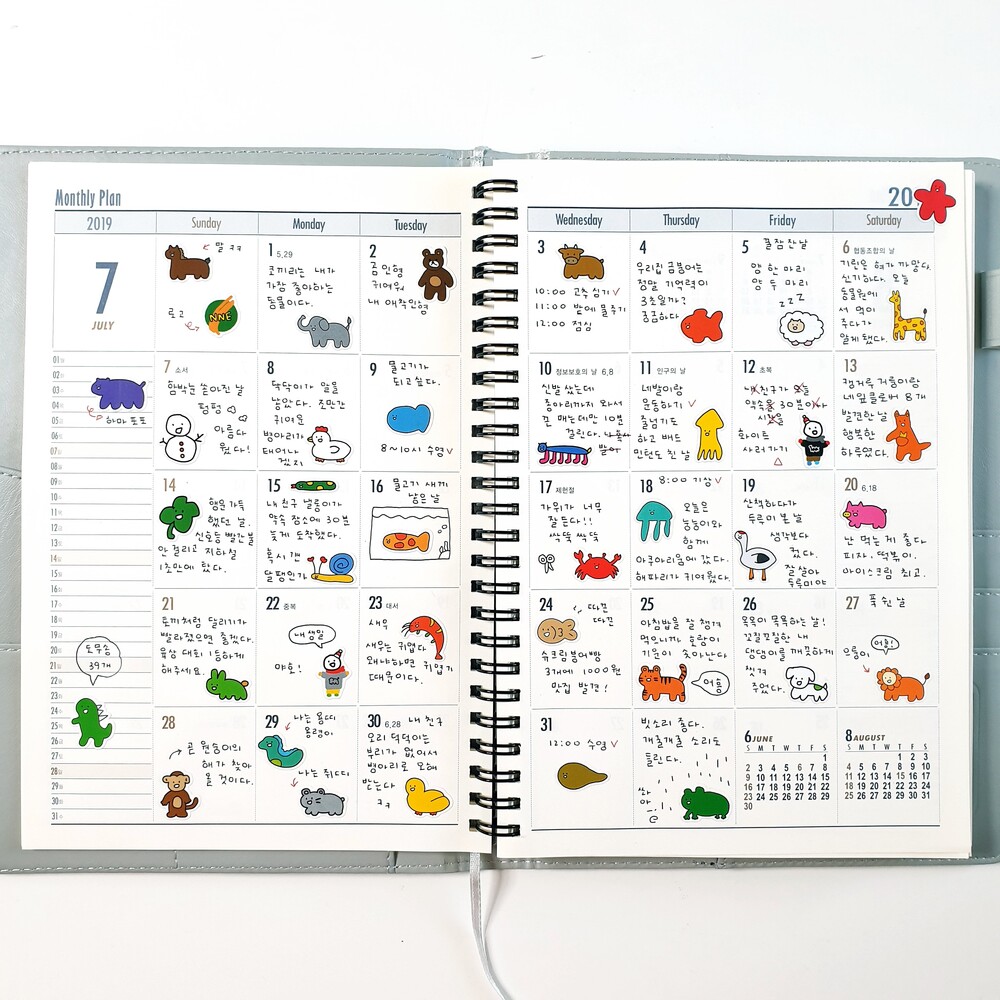 Monthly Plan
2019
Sunday
Monday
Tuesday
7
JULY
말 ㅋㅋ
로고
NNE
1 5,29
코끼리는 내가
가장 좋아하는
동물이다.
2
곰인형
귀여워
내 애착인형
01
02
03
04
05
06
07
08
09
10
11
12
13
14
15
16
17
18
19
20
21
22
23
24
25
26
27
28
29
30
31
하마 포포
도무송
39개
7 소서
함박눈 쏟아진 날
펑펑
아름다
웠다!
8
닭이 알을
낳았다. 조만간
귀여운
병아리가
태어나
겠지
9
물고기가
되고싶다.
8~10시 수영
14
행운가득
했던 날.
신호등 빨간불
안 걸리고 지하철
1초만에 탔다.
15
내 친구 날롱이가
약속 장소에 30분
늦게 도착했다.
혹시 걘
달팽인가
16
물고기 새끼
낳은 날
21
토끼처럼 달리기가
빨라졌으면 좋겠다.
육상 대회 1등하게
해주세요.
22 중복
내 생일
야호!
23 대서
새우
새우는 귀엽다
왜냐하면 귀엽기
때문이다.
28
곧 원숭이의
해가 찾아
올 것이다.
29
나는 용띠
용갱이
나는 쥐띠
30 6,28
내 친구
오리 덕덕이는
부리가 없어서
병아리로 오해
받는다
ㅋㅋ
20
Wednesday
Thursday
Friday
Saturday
3
10:00 고추심기
11:00 밭에 물주기
12:00 점심
4
우리집 금붕어는
정말 기억력이
3초일까?
궁금하다
5
꿀잠 잔 날
양 한 마리
양 두 마리
zzZ
6 협동조합의 날
기린은 혀가 까맣다.
신기하다. 오늘
동물원에
서 먹이
주다가
알게 됐다.
10 정보보호의 날 6,8
신발 샀는데
종아리까지 와서
끈 매는데만 10분
걸린다.
11 인구의 날
네발이랑
운동하기
줄넘기도
하고 배드
민턴도 친 날
12 초복
약속을 30분
화이트
사러가기
13
캥거루 거롱이랑
네잎클로버 8개
발견한 날
행복한
하루였다.
17 제헌절
가위가 너무
잘 든다!!
싹뚝 싹뚝
18
8:00 기상
오늘은
농농이와
함께
아쿠아리움에 갔다.
해파리가 귀여웠다.
19
산책하다가
두루미 본 날
생각보다
컸다.
잘 살아
두루미야
20 6,18
난 먹는 게 좋다
피자, 떡볶이,
아이스크림 최고.
24
따끈
따끈
슈크림붕어빵
3개에 1000원
맛집 발견!
25
아침밥을 잘 챙겨
먹으니까 호랑이
기운이 솟아난다
어흥
26
목욕이 뚝뚝하는 날!
꼬질꼬질한 내
댕댕이를 깨끗하게
씻겨
주었다.
27
푹 쉰 날
어흥!
으릉이
31
12:00 수영
빗소리 좋다.
개굴개굴 소리도
들린다.
쏴
아
6 JUNE
S M T W T F S
1
2 3 4 5 6 7 8
9 10 11 12 13 14 15
16 17 18 19 20 21 22
23 24 25 26 27 28 29
30
8 AUGUST
S M T W T F S
1 2 3
4 5 6 7 8 9 10
11 12 13 14 15 16 17
18 19 20 21 22 23 24
25 26 27 28 29 30 31